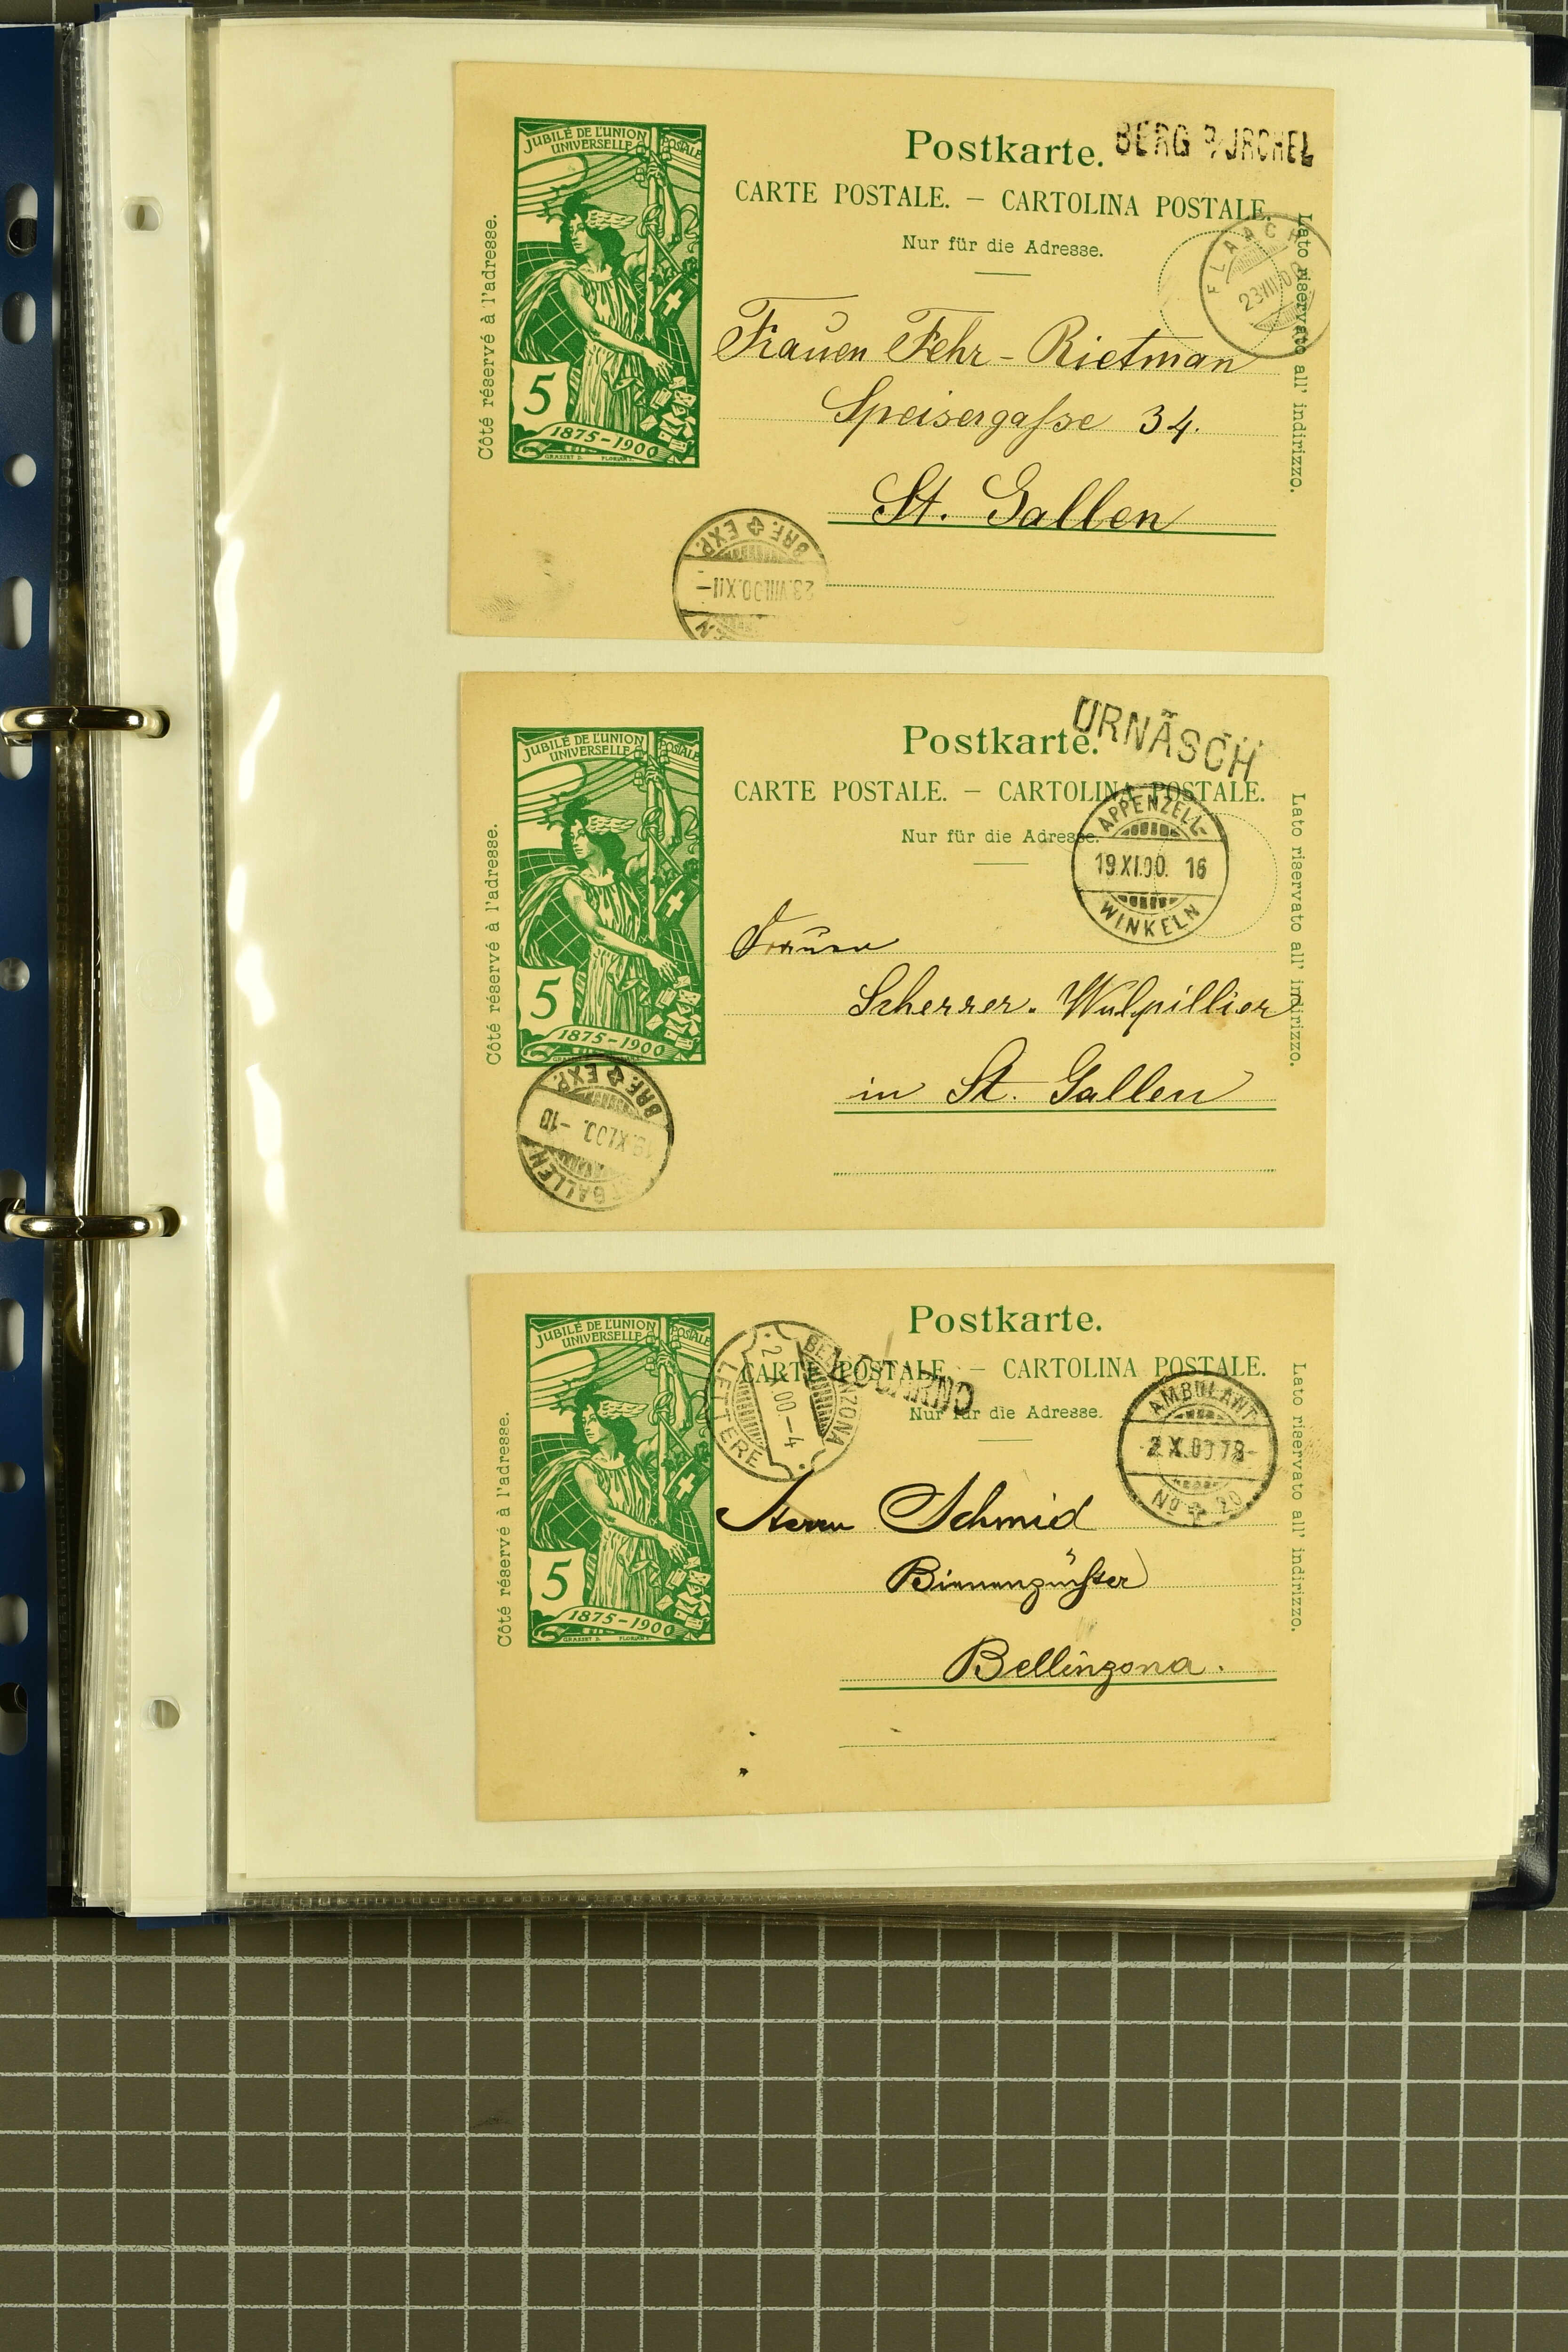 JUBILÉ DE L'UNION POSTALE
UNIVERSELLE
5
1875-1900
GRASSET D. FLORIAN S.
Côté réservé à l'adresse.
Postkarte.
BERG a/JRCHEL
CARTE POSTALE. — CARTOLINA POSTALE.
Nur für die Adresse.
Lato riservato all' indirizzo.
FLAACH
23 VIII 00
Frauen Fehr-Rietman
Speisergasse 34.
St. Gallen
BRF. EXP.
23.VIII.00.XII-
JUBILÉ DE L'UNION POSTALE
UNIVERSELLE
5
1875-1900
Côté réservé à l'adresse.
Postkarte.
URNÄSCH
CARTE POSTALE. — CARTOLINA POSTALE.
Nur für die Adresse.
Lato riservato all' indirizzo.
APPENZELL-
19.XI.00. 16
WINKELN
Frauen
Scherrer-Wulpillier
in St. Gallen
ST. GALLEN
19.XI.00.-10
BRF. EXP.
JUBILÉ DE L'UNION POSTALE
UNIVERSELLE
5
1875-1900
GRASSET D. FLORIAN S.
Côté réservé à l'adresse.
Postkarte.
CARTE POSTALE. — CARTOLINA POSTALE.
Nur für die Adresse.
Lato riservato all' indirizzo.
BELLINZONA
LETTERE
LOCARNO
AMBULANT
2.X.00 78-
No 20
Herrn Schmid
Bienenzüchter
Bellinzona.